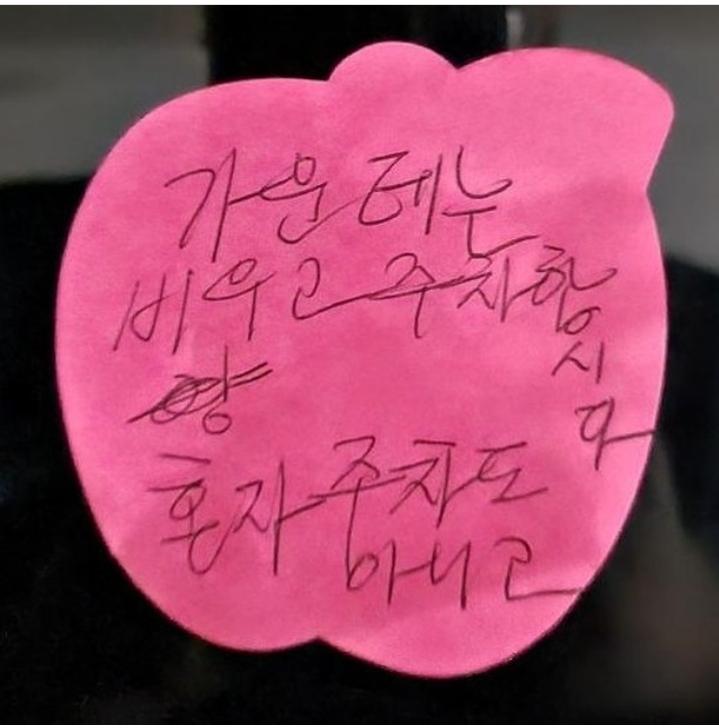 가운데는
비우고 주차합
시다
혼자 주차도
아니고